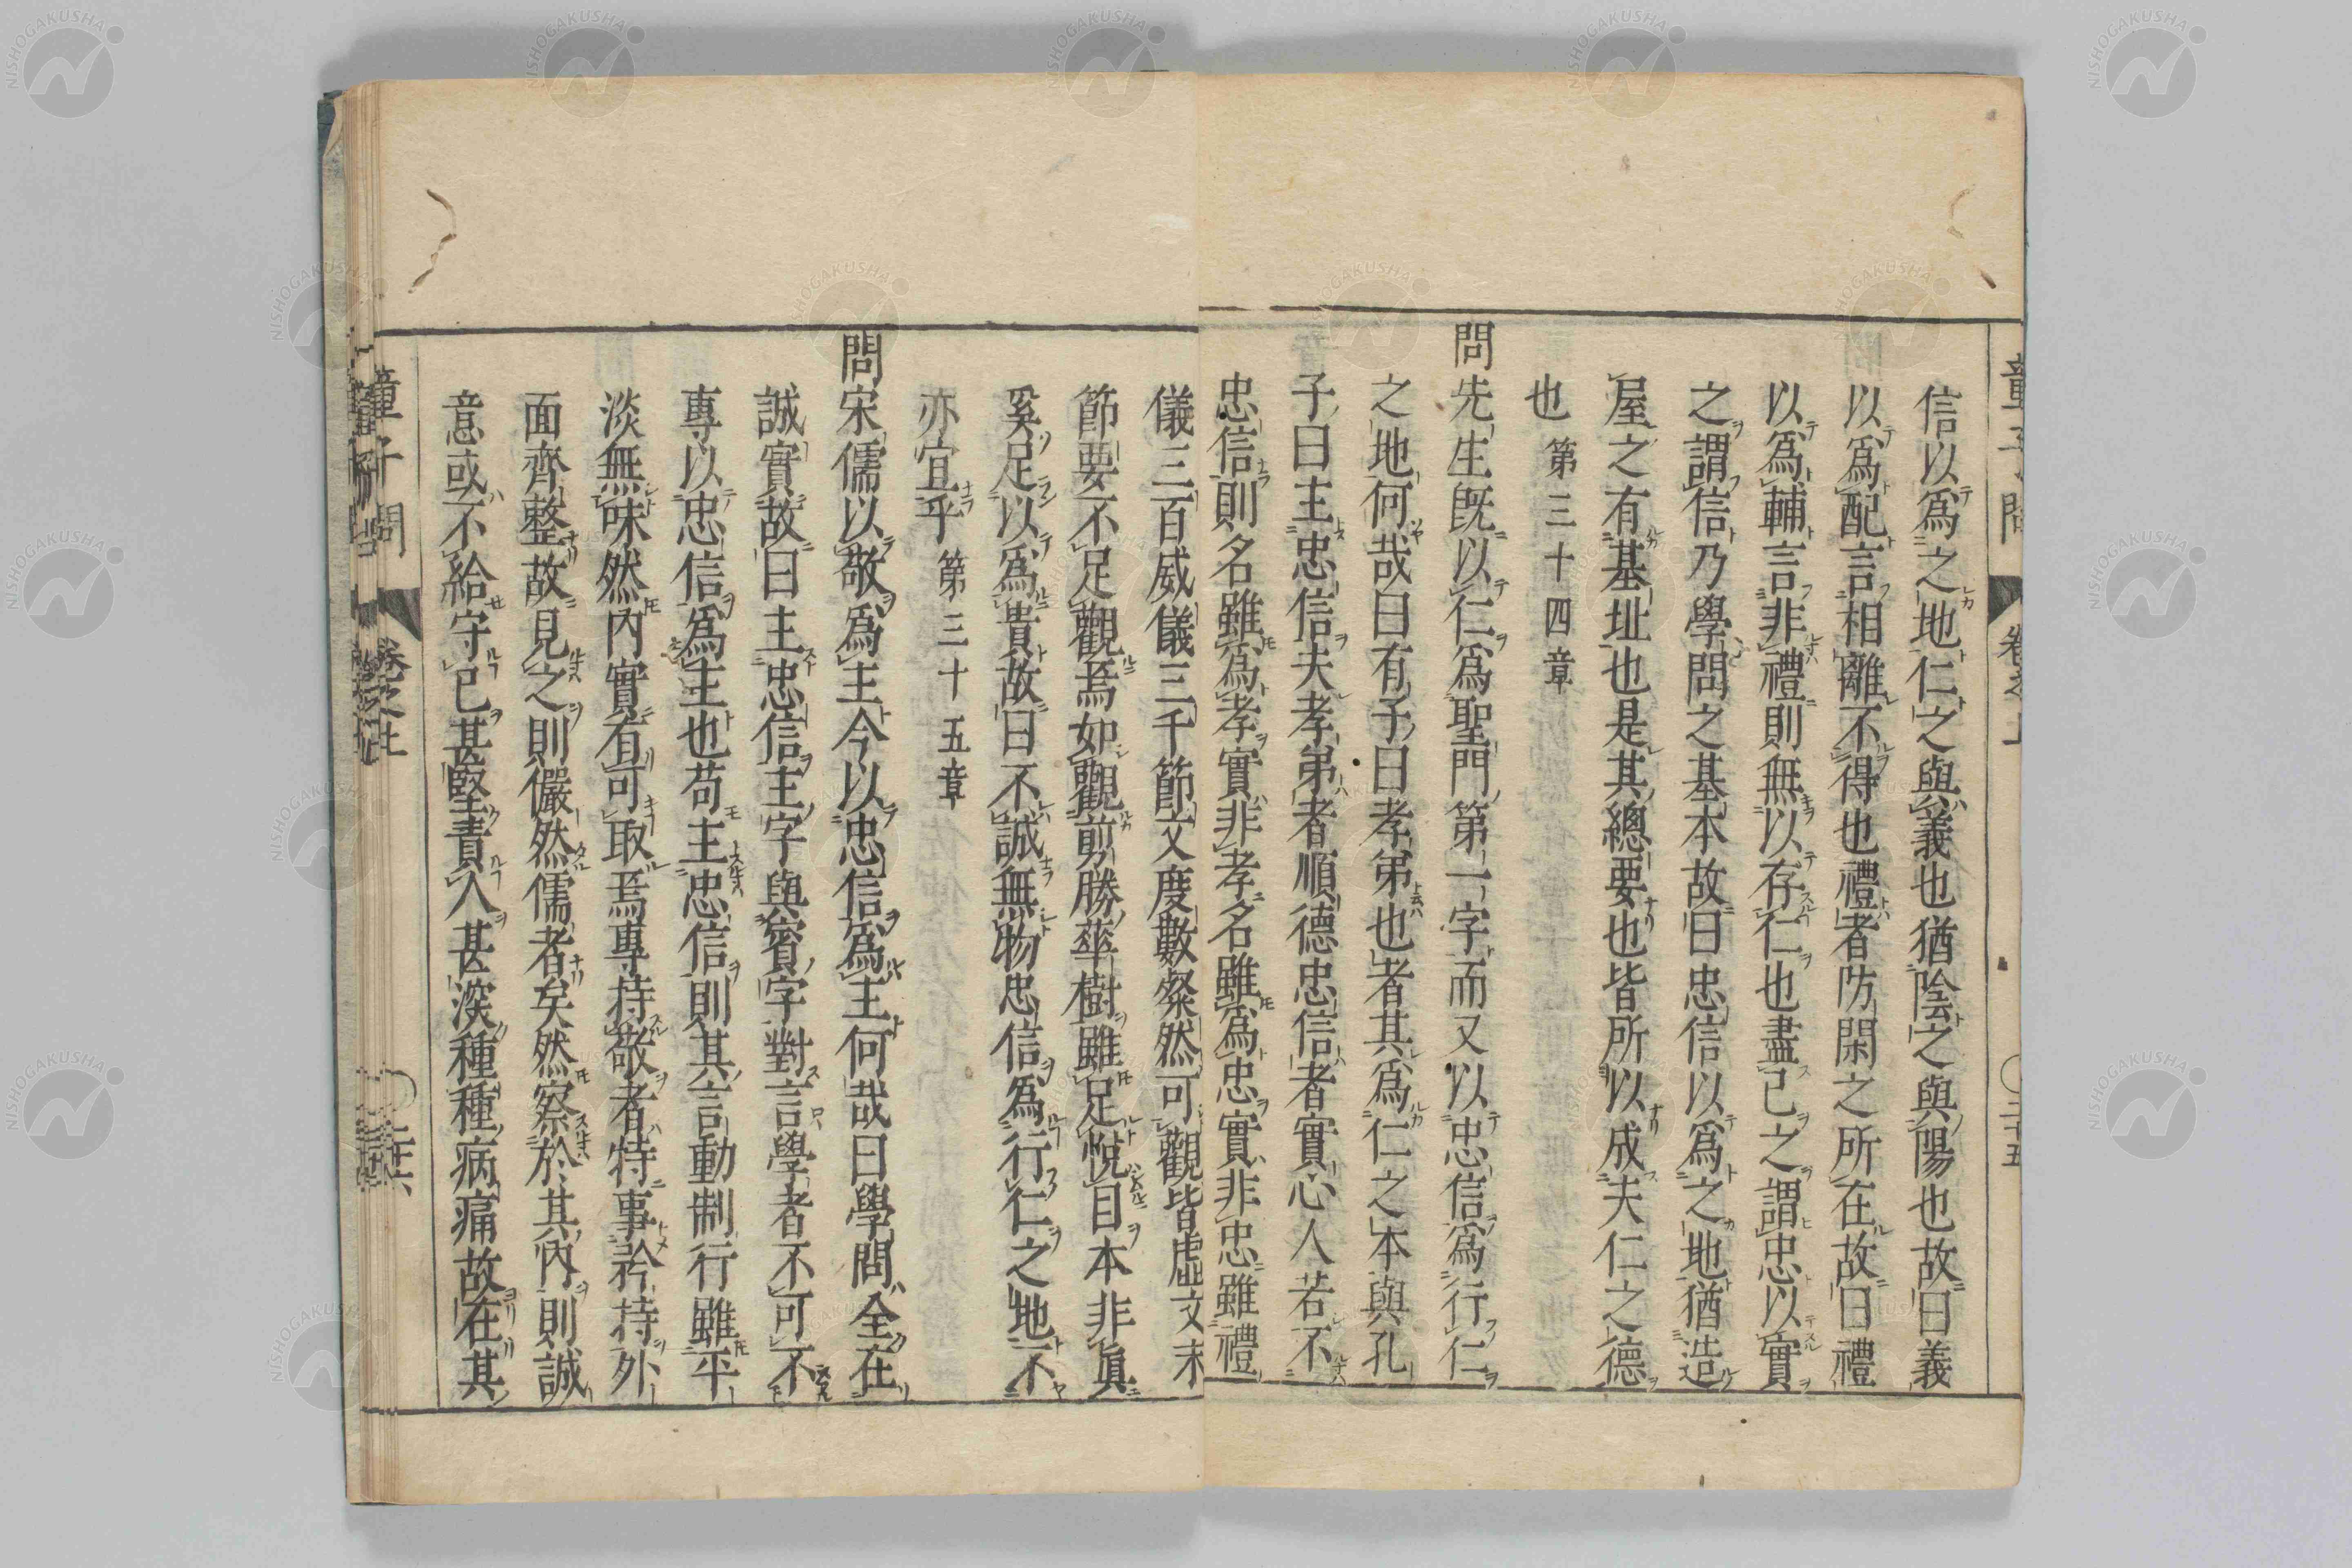 信以爲之地仁之與義也猶陰之與陽也故曰義
以爲配言相離不得也禮者防閑之所在故曰禮
以爲輔言非禮則無以存仁也盡己之謂忠以實
之謂信乃學問之基本故曰忠信以爲之地猶造
屋之有基址也是其總要也皆所以成夫仁之德
也 第三十四章
問先生既以仁爲聖門第一字而又以忠信爲行仁
之地何哉曰有子曰孝弟也者其爲仁之本與孔
子曰主忠信夫孝弟者順德忠信者實心人若不
忠信則名雖爲孝實非孝名雖爲忠實非忠雖禮
儀三百威儀三千節文度數燦然可觀皆虛文末
節要不足觀焉如觀剪勝華樹雖足悅目本非眞
奚足以爲貴故曰不誠無物忠信爲行仁之地不
亦宜乎 第三十五章
問宋儒以敬爲主今以忠信爲主何哉曰學問全在
誠實故曰主忠信主字與賓字對言學者不可不
專以忠信爲主也苟主忠信則其言動制行雖平
淡無味然內實有可取焉專持敬者特事矜持外
面齊整故見之則儼然儒者矣然察於其內則誠
意或不給守己甚堅責人甚深種種病痛故在其
童子問 卷之上 二十五
童子問 卷之上 二十六
NISHOGAKUSHA